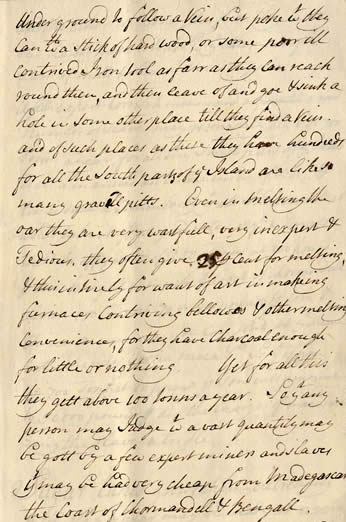 Under ground to follow a Vein, but poke wth they
Can wth a Stick of hard wood, or some poor ill
contrived Iron tool as farr as they can reach
round them, and then leave of and goe & sink a
hole in some other place till they find a Vein.
and of such places as these they have hundreds
for all the South part of ye Island are like so
many gravell pitts. Even in melting the
oar they are very wastfull, very inexpert &
Tedious, they often give 25 P Cent for melting,
& this intirely for want of art in making
furnaces Contriving bellows & other melting
Conveniences, for they have Charcoal enough
for little or nothing Yet for all this
they gett above 100 tonns a year. So yt any
person may Judge wt a vast quantity may
be gott by a few expert miners and slaves
yt may be had very cheap from Madagascar
the Coast of Chormandell & Bengall.